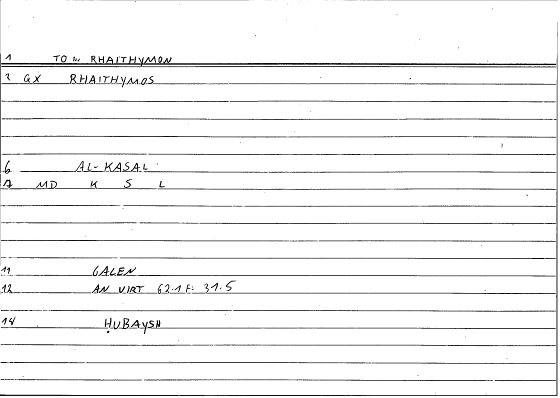 1 TO RHAITHYMON
2 GX RHAITHYMOS
6 AL-KASAL
A MD K S L
11 GALEN
12 AN VIRT 62.1 F: 31.5
14 ḤUBAYSH